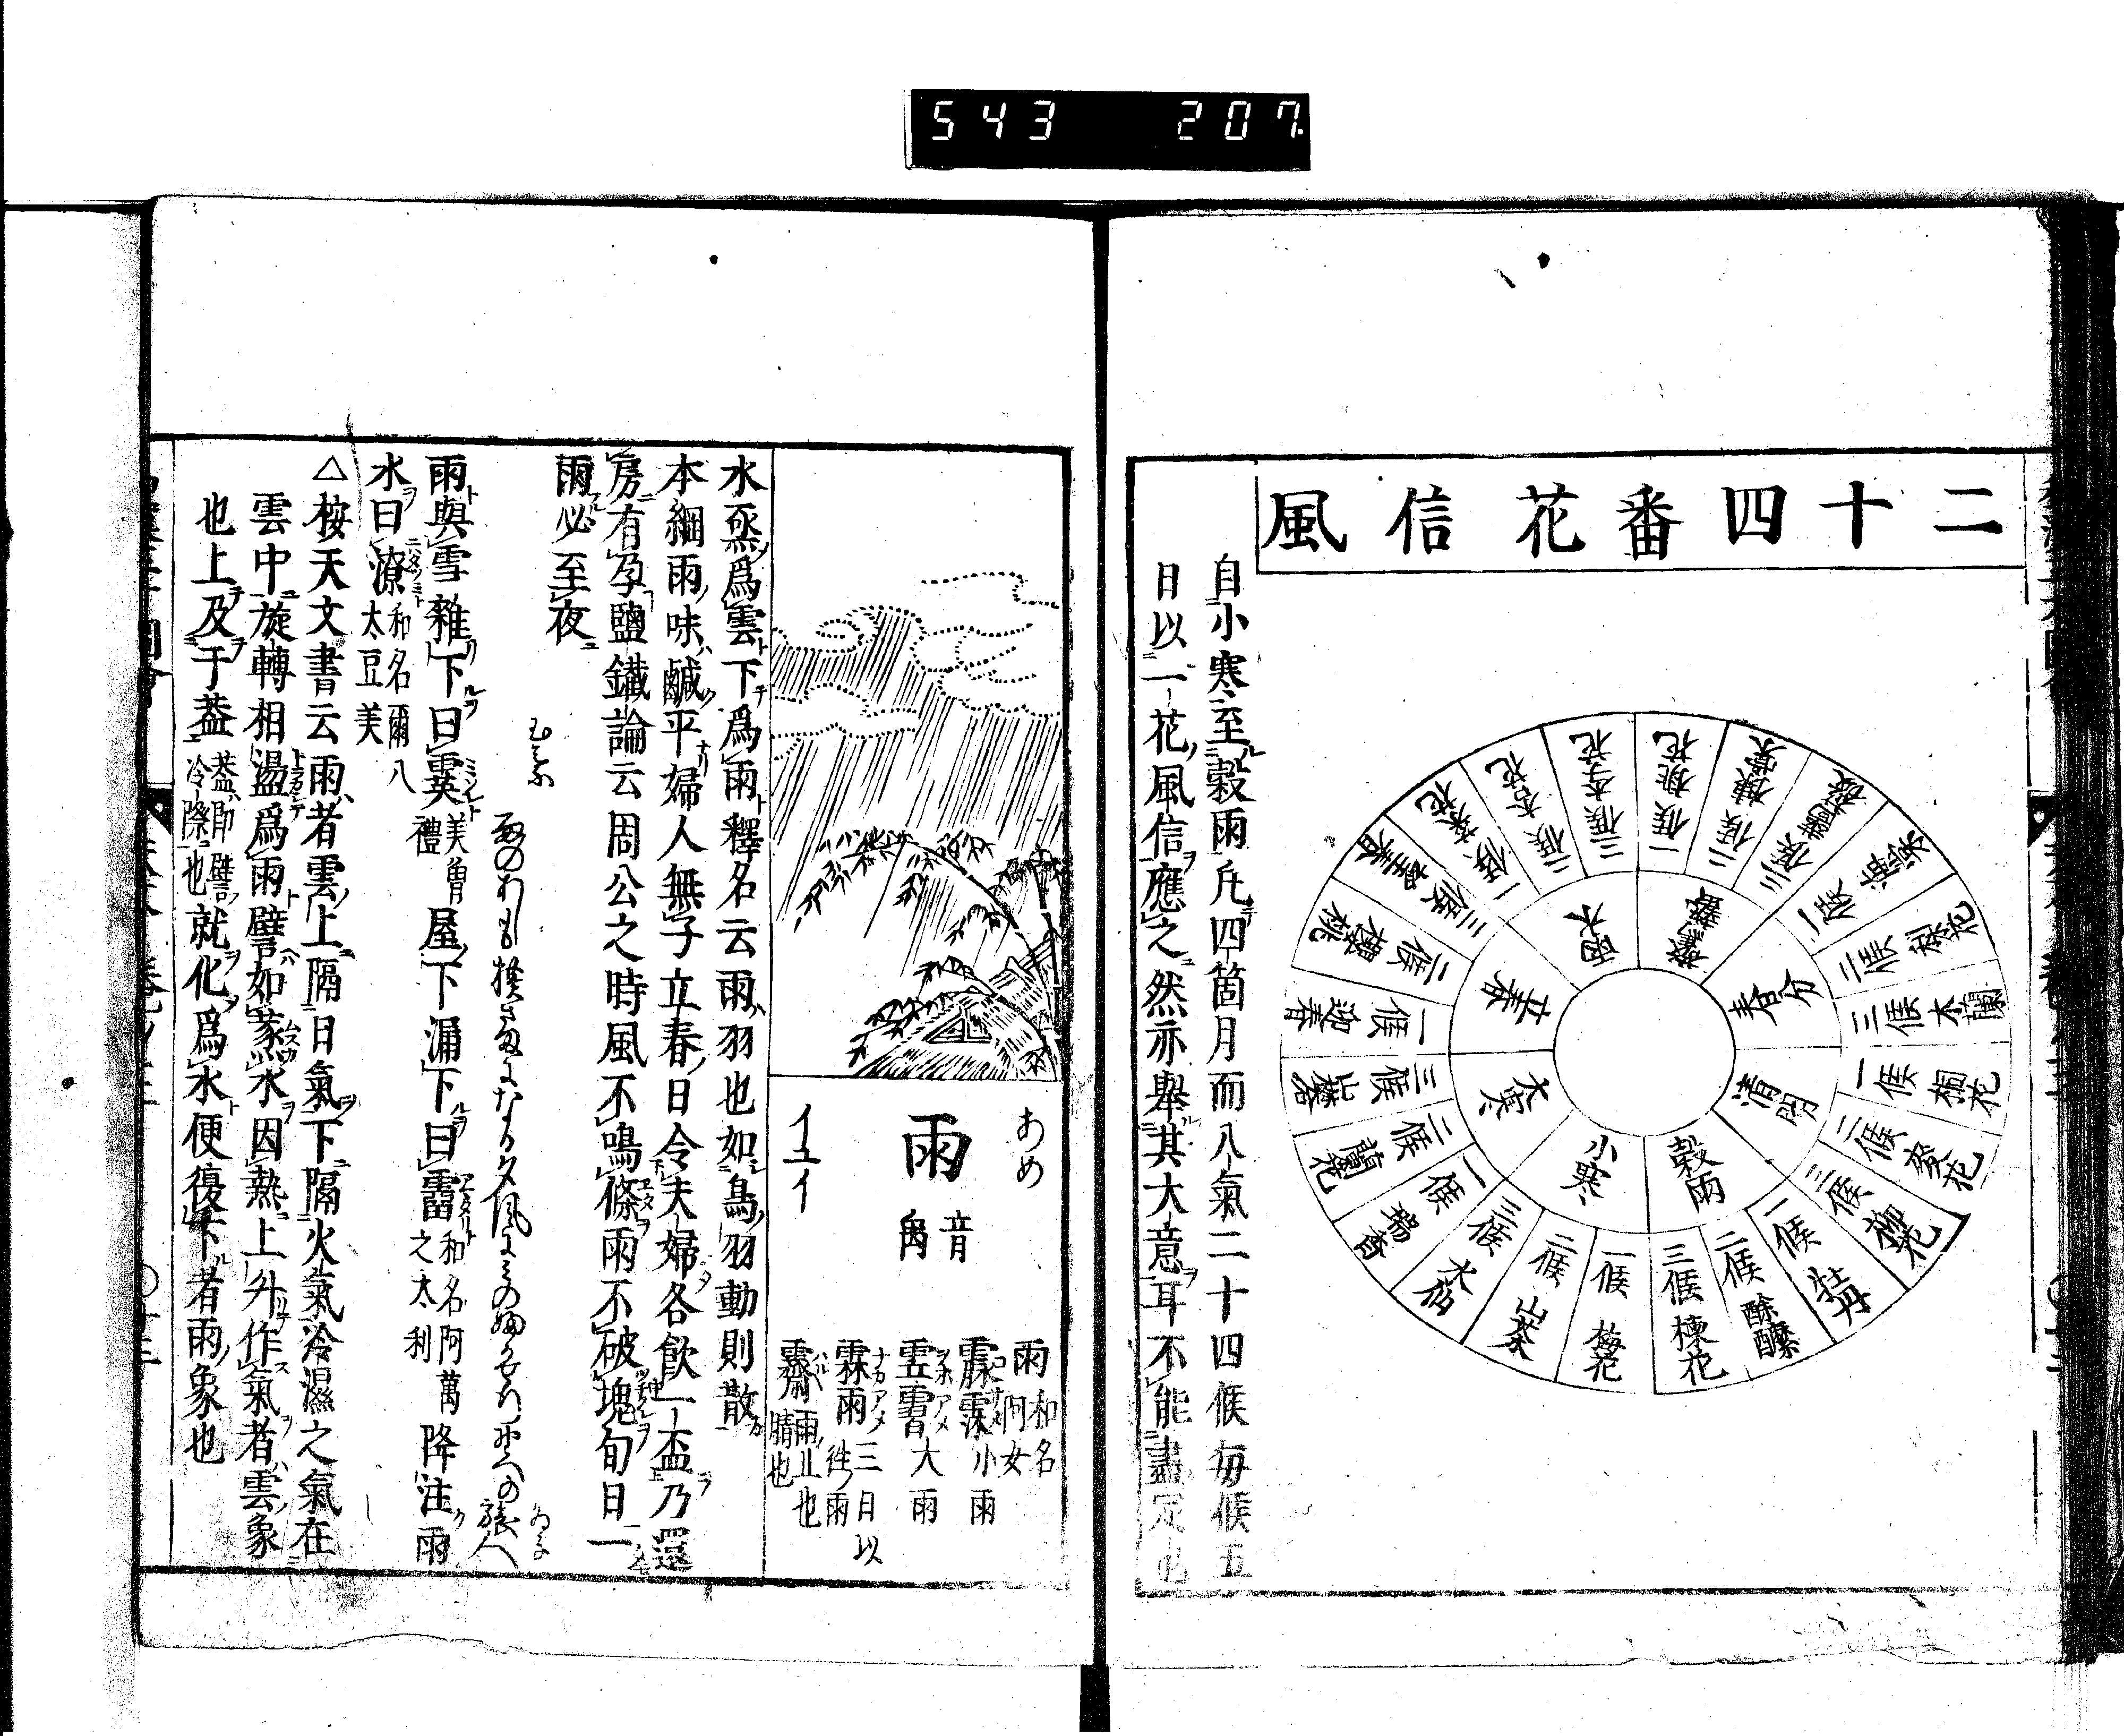 543 207
二十四番花信風
小寒
一候 梅花
二候 山茶
三候 水仙
大寒
一候 瑞香
二候 蘭花
三候 山礬
立春
一候 迎春
二候 櫻桃
三候 望春
雨水
一候 菜花
二候 杏花
三候 李花
驚蟄
一候 桃花
二候 棣棠
三候 薔薇
春分
一候 海棠
二候 梨花
三候 木蘭
清明
一候 桐花
二候 麥花
三候 柳花
穀雨
一候 牡丹
二候 酴醾
三候 楝花
自小寒至穀雨凡四箇月而八氣二十四候毎候五
日以一花風信應之然亦舉其大意耳不能盡定也
あめ
雨 音禹
イユイ
雨 和名阿女
霢霂 小雨
大雨
霖雨 三日以徃雨
霽 雨止也晴也
水烝爲雲下爲雨釋名云雨羽也如鳥羽動則散
本綱雨味鹹平婦人無子立春日令夫婦各飲一盃乃還
房有孕鹽鐵論云周公之時風不鳴條雨不破塊旬日一
雨必至夜
雨與雪雜下曰霙 美曾禮 屋下漏下曰霤 和名阿萬之太利 降注雨
水曰潦 和名爾八太豆美
△桉天文書云雨者雲上隔日氣下隔火氣冷濕之氣在
雲中旋轉相盪爲雨譬如蒸水因熱上升作氣者雲象
也上及于葢 葢即譬冷際也 就化爲水便復下者雨象也